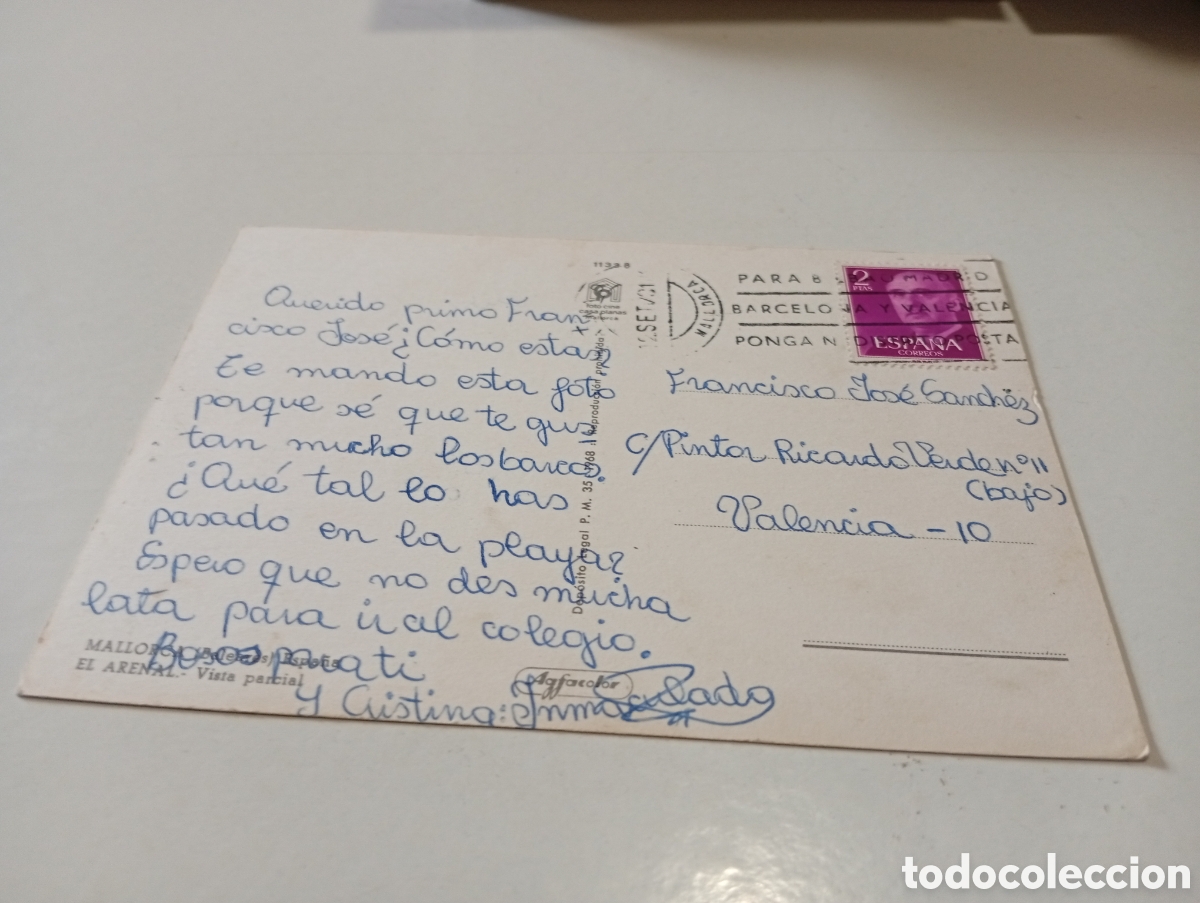 Querido primo Fran-
cisco José ¿Cómo estas?
Te mando esta foto
porque sé que te gus
tan mucho los barcos.
¿Qué tal lo has
pasado en la playa?
Espero que no des mucha
lata para ir al colegio.
Besos para ti
Y Cristina: Inmaculada
MALLORCA (Baleares) España
EL ARENAL.- Vista parcial
Agfacolor
1139 B
casa planas
Depósito Legal P. M. 35 Reproducción prohibida
SET
MALLORCA
PARA MADRID
BARCELONA Y VALENCIA
PONGA
2
PTAS
ESPAÑA
CORREOS
Francisco José Sanchéz
c/ Pintor Ricardo Verde nº 11
(bajo)
Valencia - 10
todocoleccion